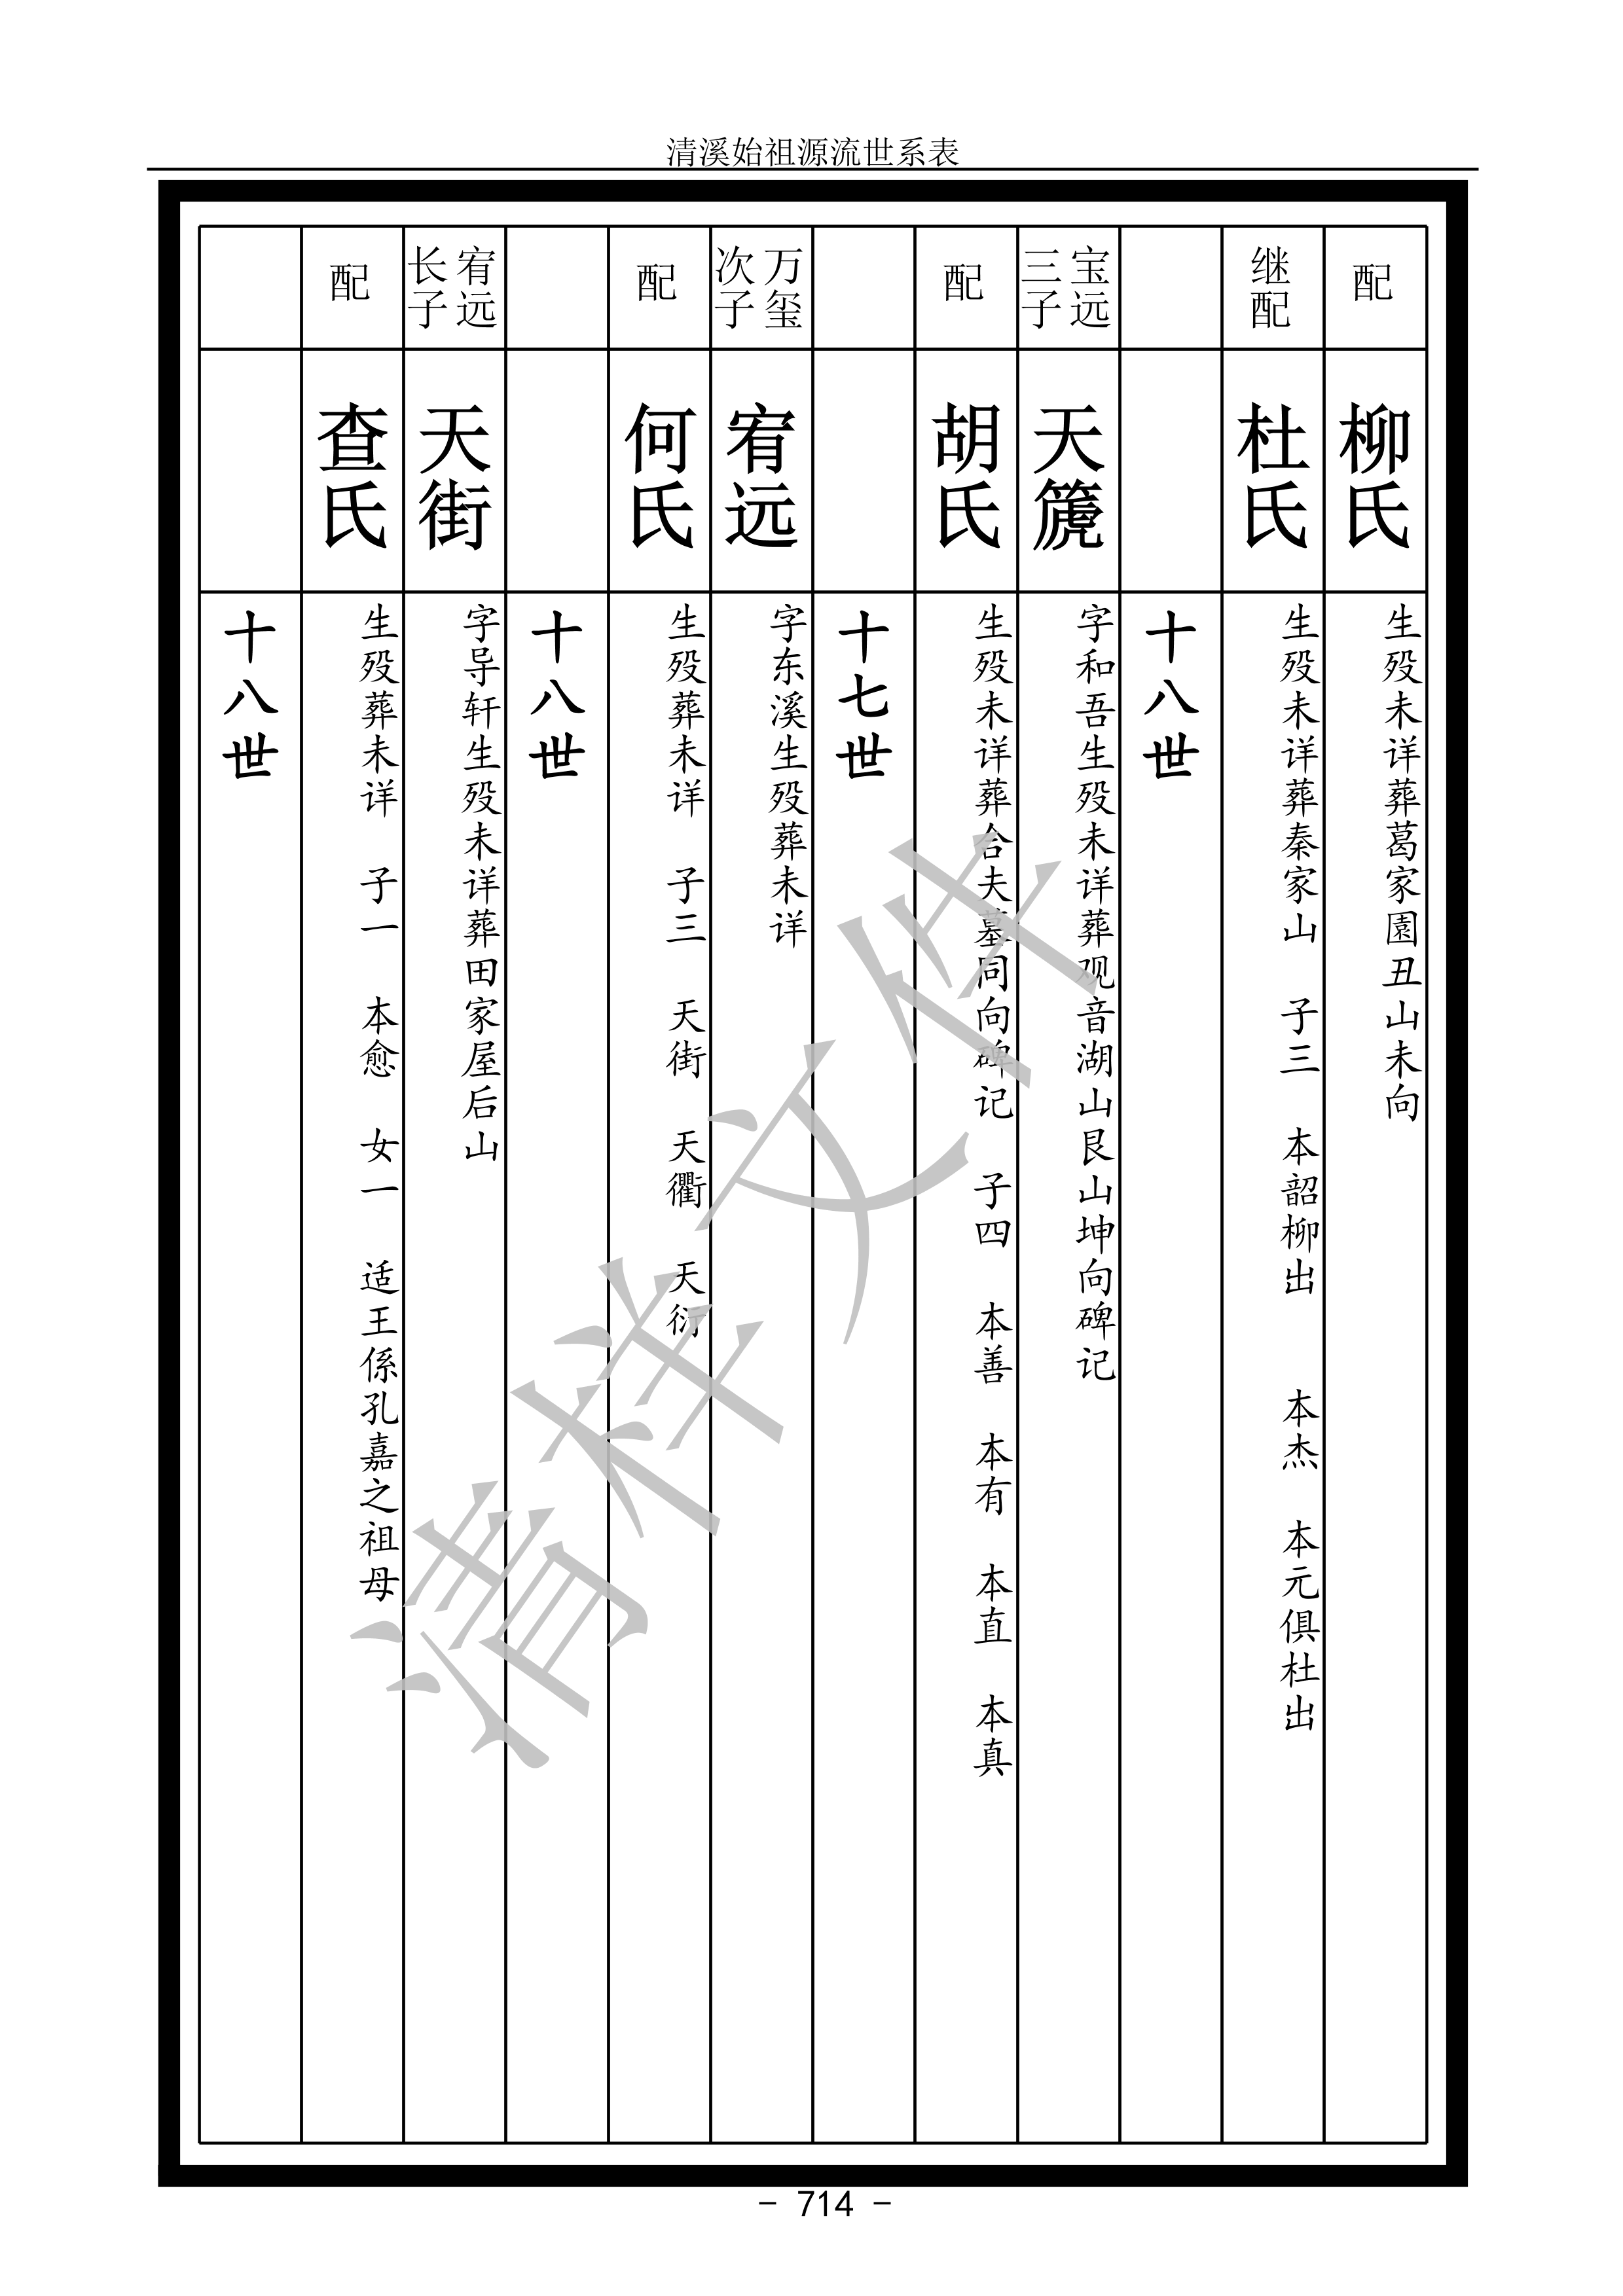 清溪始祖源流世系表
配
柳氏
生殁未详葬葛家園丑山未向
继配
杜氏
生殁未详葬秦家山 子三 本韶柳出 本杰 本元俱杜出
十八世
宝远
三子
天篪
字和吾生殁未详葬观音湖山艮山坤向碑记
配
胡氏
生殁未详葬合夫墓同向碑记 子四 本善 本有 本直 本真
十七世
万玺
次子
宥远
字东溪生殁葬未详
配
何氏
生殁葬未详 子三 天街 天衢 天衍
十八世
宥远
长子
天街
字导轩生殁未详葬田家屋后山
配
查氏
生殁葬未详 子一 本愈 女一 适王係孔嘉之祖母
十八世
清样文件
- 714 -